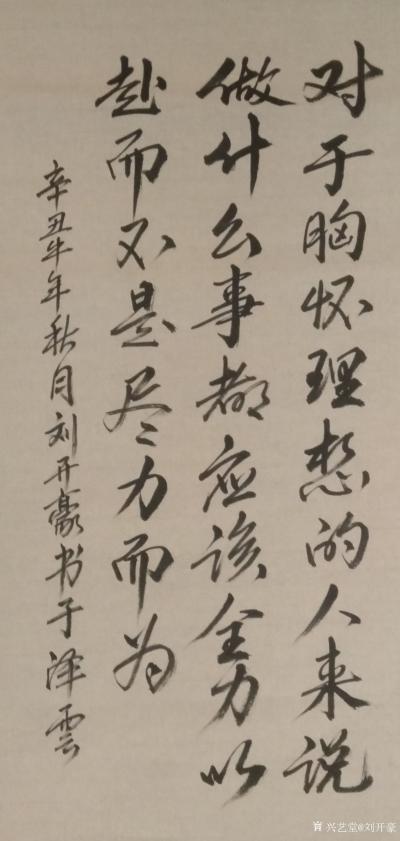 对于胸怀理想的人来说
做什么事都应该全力以
赴而不是尽力而为
辛丑牛年秋月刘开豪书于泽雲
兴艺堂@刘开豪